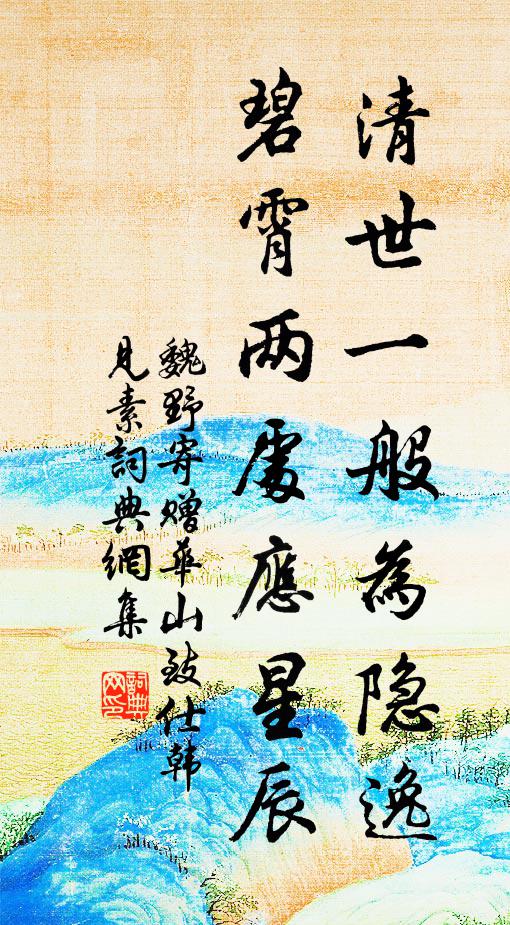 清世一般為隐逸
碧霄两處應星辰
魏野寄赠華山致仕韩
見素詞典網集
詞典
网印